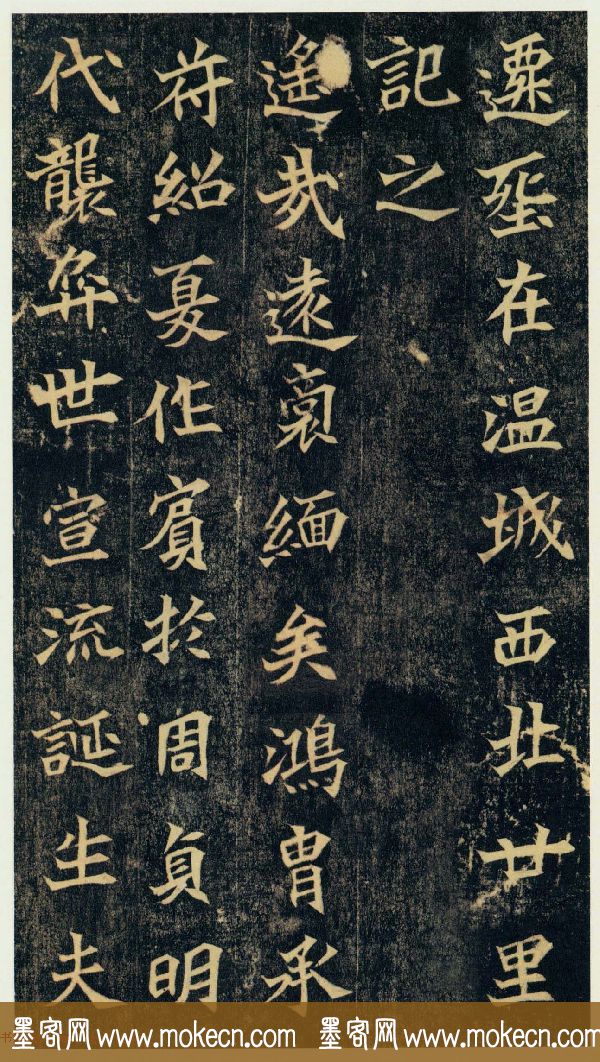 遷在温城西北廿里
記之
遙哉遠裔緬矣鴻胄承
苻紹夏作賓於周貞明
代襲弈世宣流誕生夫
墨客网 www.mokecn.com 墨客网 www.mokecn.com